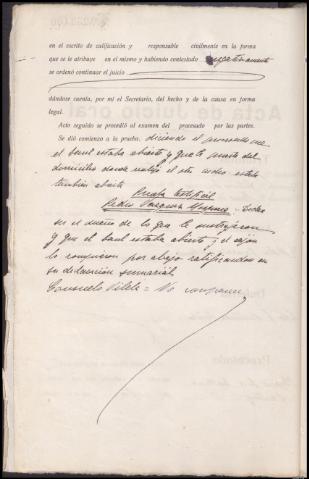 en el escrito de calificación y responsable civilmente en la forma
que se le atribuye en el mismo y habiendo contestado negativamente
se ordenó continuase el juicio
dándose cuenta, por mí el Secretario, del hecho y de la causa en forma
legal.
Acto seguido se procedió al examen del procesado por las partes.
Se dió comienzo a la prueba, diciendo el procesado que
el baul estaba abierto y que la puerta del
domicilio donde realizó el otro estaba
también abierta
Prueba testifical
Pedro
ser el dueño de lo que le sustrajeron
y que el baul estaba abierto y el cajon
lo rompieron por abajo ratificandose en
su declaración sumarial
Consuelo = No comparece